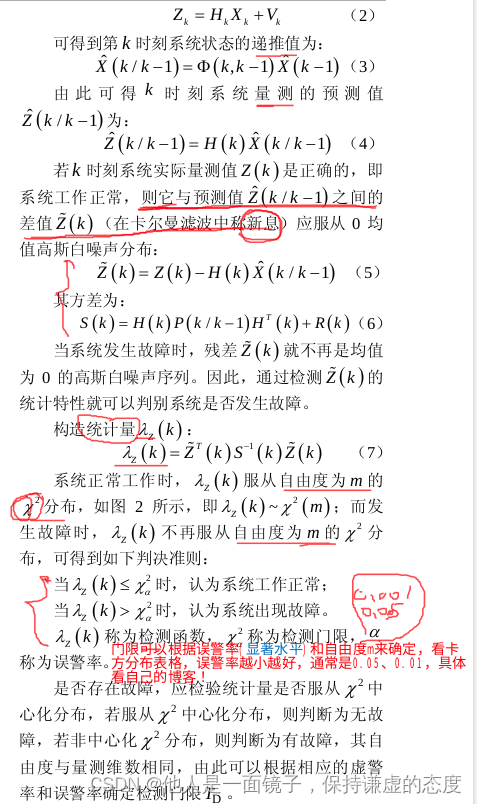 Z_k = H_k X_k + V_k （2）
可得到第 k 时刻系统状态的递推值为：
X̂(k/k−1) = Φ(k,k−1) X̂(k−1) （3）
由此可得 k 时刻系统量测的预测值
Ẑ(k/k−1) 为：
Ẑ(k/k−1) = H(k) X̂(k/k−1) （4）
若 k 时刻系统实际量测值 Z(k) 是正确的，即
系统工作正常，则它与预测值 Ẑ(k/k−1) 之间的
差值 Z̃(k)（在卡尔曼滤波中称新息）应服从 0 均
值高斯白噪声分布：
Z̃(k) = Z(k) − H(k) X̂(k/k−1) （5）
其方差为：
S(k) = H(k) P(k/k−1) H^T(k) + R(k) （6）
当系统发生故障时，残差 Z̃(k) 就不再是均值
为 0 的高斯白噪声序列。因此，通过检测 Z̃(k) 的
统计特性就可以判别系统是否发生故障。
构造统计量 λ_Z(k)：
λ_Z(k) = Z̃^T(k) S^−1(k) Z̃(k) （7）
系统正常工作时，λ_Z(k) 服从自由度为 m 的
χ² 分布，如图 2 所示，即 λ_Z(k) ~ χ²(m)；而发
生故障时，λ_Z(k) 不再服从自由度为 m 的 χ² 分
布，可得到如下判决准则：
当 λ_Z(k) ≤ χ²_α 时，认为系统工作正常；
当 λ_Z(k) > χ²_α 时，认为系统出现故障。
0.001
0.05
λ_Z(k) 称为检测函数，χ² 称为检测门限，α
称为误警率。
门限可以根据误警率(显著水平)和自由度m来确定，看卡
方分布表格，误警率越小越好，通常是0.05、0.01，具体
看自己的博客！
是否存在故障，应检验统计量是否服从 χ² 中
心化分布，若服从 χ² 中心化分布，则判断为无故
障，若非中心化 χ² 分布，则判断为有故障，其自
由度与量测维数相同，由此可以根据相应的虚警
率和误警率确定检测门限 T_D。
CSDN @他人是一面镜子，保持谦虚的态度